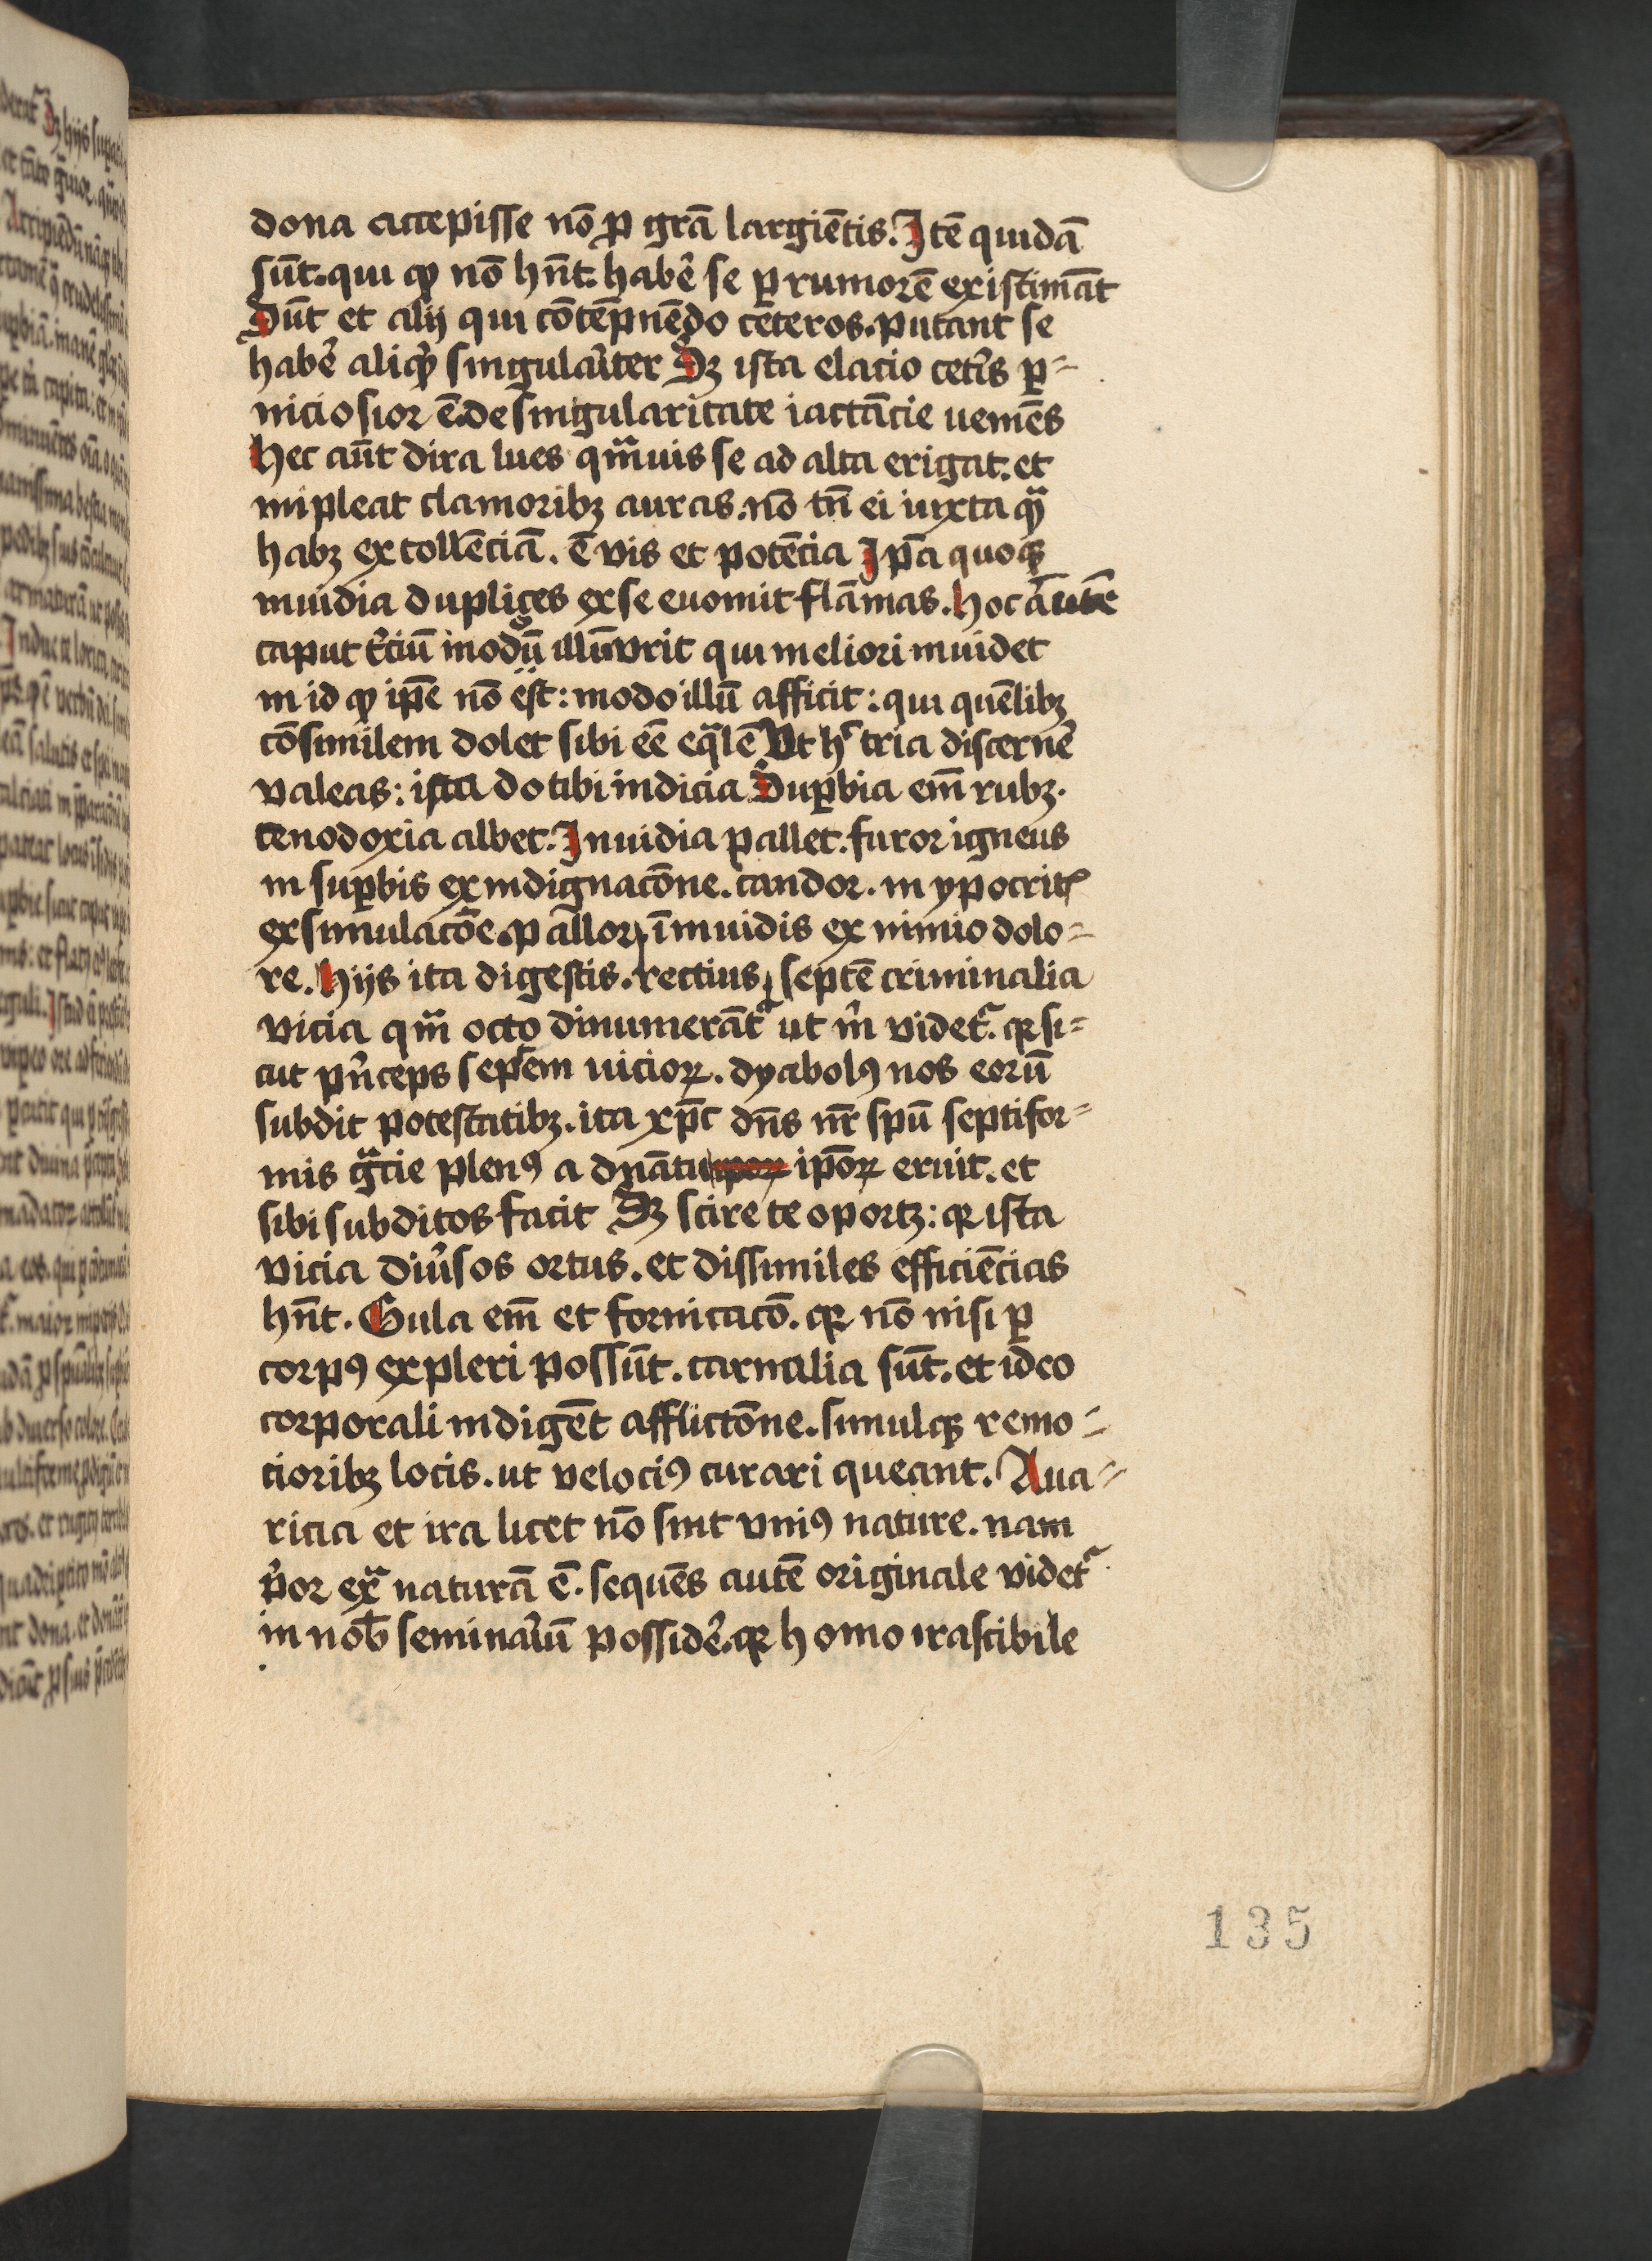 dona accepisse nō ꝑ grā largiētis. Itē quidā
sūt. qui ꝙ nō hn̄t. habe᷑ se ꝑ rumorē existimāt
Sūt et alij qui cōtēpnēdo ceteros. putant se
habe᷑ aliqḍ singulaṙiter Sꝫ ista elacio cet᷑is ꝑ⸗
niciosior ē. de singularitate iactācie uemēs
Hec aūt dira lues qͣmuis se ad alta erigat. et
impleat clamoribꝫ auras. nō tn̄ ei iuxta qͣ
habꝫ extollēciā. ē vis et potēcia Ip̄a quoqꝫ
inuidia duplices ex se euomit flāmas. Hoc autē
caput t᷑ciū modū illū vrit qui meliori inuidet
in id ꝙ ip̄e nō est: modo illū afficit: qui quēlibꝫ
cōsimilem dolet sibi eē eqͣlē Vt hͨ tria discerne᷑
valeas: ista do tibi indicia Suꝑbia em̄ rubꝫ.
cenodoxia albet. Inuidia pallet. furor igneus
in suꝑbis ex indignacōne. candor. in ypocritꝭ
ex simulacōe. pallor, ī inuidis ex nimio dolo⸗
re. Hijs ita digestis. rectius, septē criminalia
vicia qͣm octo dinumerāt᷑ ut m̄ videt᷑. qꝛ si⸗
cut pͥnceps septem uicioꝝ. dyabolꝰ nos eorū
subdit potestatibꝫ. ita xp̄c dn̄s nr̄ spū septifor⸗
mis gͣcie plenꝰ a dn̄atu ip̄oꝝ eruit. et
sibi subditos facit Sꝫ scire te oportꝫ: qꝛ ista
vicia diu᷑sos ortus. et dissimiles efficiēcias
hn̄t. Gula em̄ et fornicacō. qꝛ nō nisi ꝑ
corpꝰ expleri possūt. carnalia sūt. et ideo
corporali indigēt afflictōne. simulqꝫ remo⸗
cioribꝫ locis. ut velociꝰ curari queant. Aua⸗
ricia et ira licet nō sint vniꝰ nature. nam
pͥor exͣ naturā ē. sequēs autē originale videt᷑
in nob̄ seminaṙiū posside᷑. qꝛ homo irascibile
135